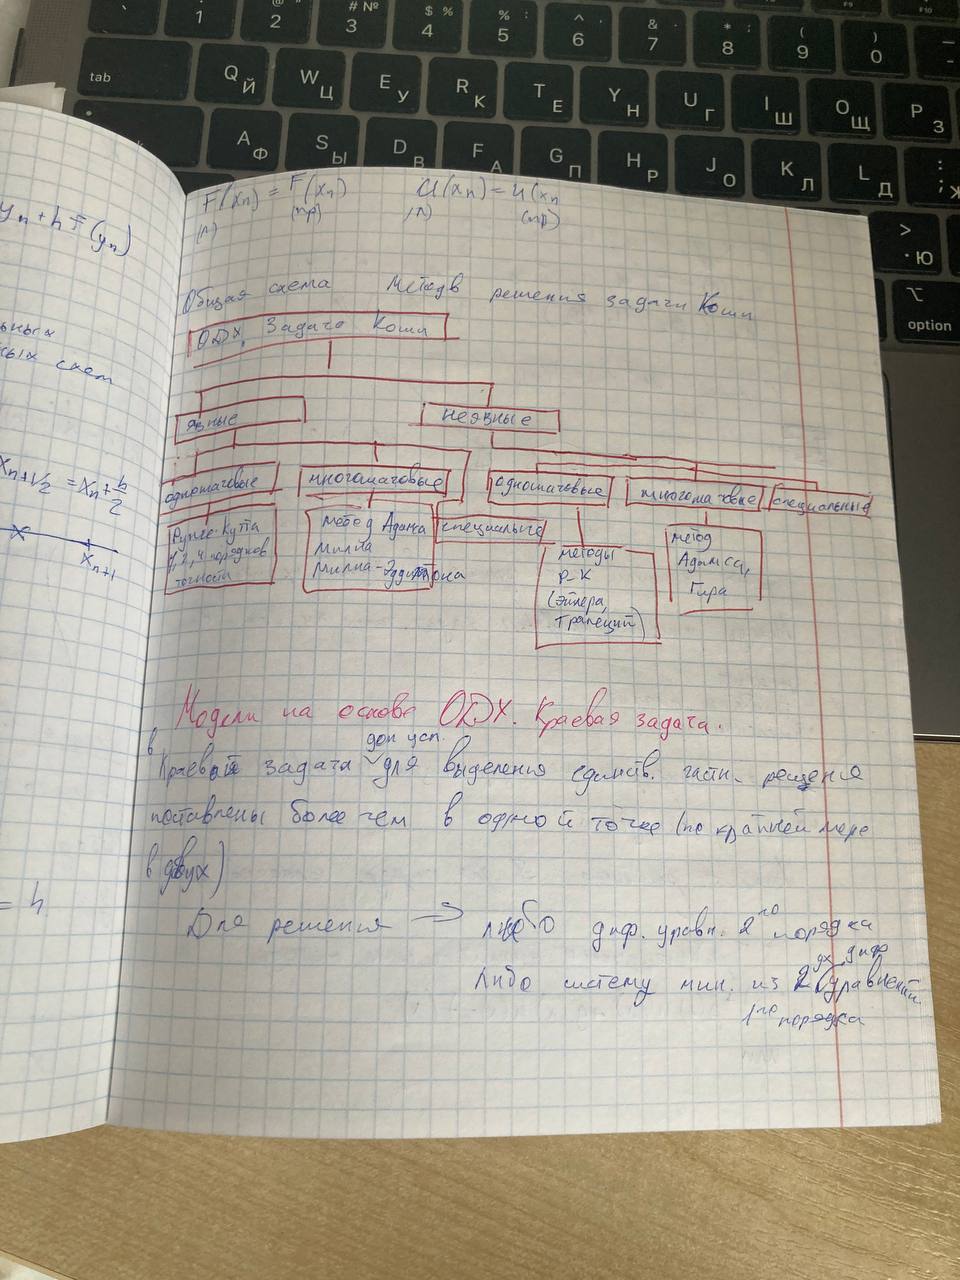 tab
# № 3
$ % 4
% : 5
^ , 6
& . 7
* ; 8
( 9
) 0
1
2
Q Й
W Ц
E У
R К
T Е
Y Н
U Г
I Ш
O Щ
P З
A Ф
S Ы
D В
F А
G П
H Р
J О
K Л
L Д
; Ж
> . Ю
option
yₙ + hF(yₙ)
ьных
ных схем
xₙ₊₁/₂ = xₙ + h/2
xₙ₊₁
= h
F(xₙ) = F(xₙ) U(xₙ) = U(xₙ
(л) (пр) (л) (пр)
Общая схема Метедв решения задачи Коши
ОДУ, Задача Коши
явные неявные
одношаговые многошаговые одношаговые многошаговые специальные
Рунге-Кутта
1, 2, 4 порядков
точности
метод Адамса
Милна
Милна-Эддингтона
специальные
методы
Р-К
(Эйлера,
Трапеций)
метод
Адамса,
Гира
Модели на основе ОДУ. Краевая задача.
в Краевой задача доп усл. для выделения единств. частн. решения
поставлены более чем в одной точке (по крайней мере
в двух)
Для решения → либо диф. уравн. 2го порядка
либо систему мин. из 2ух диф. уравнений
1го порядка